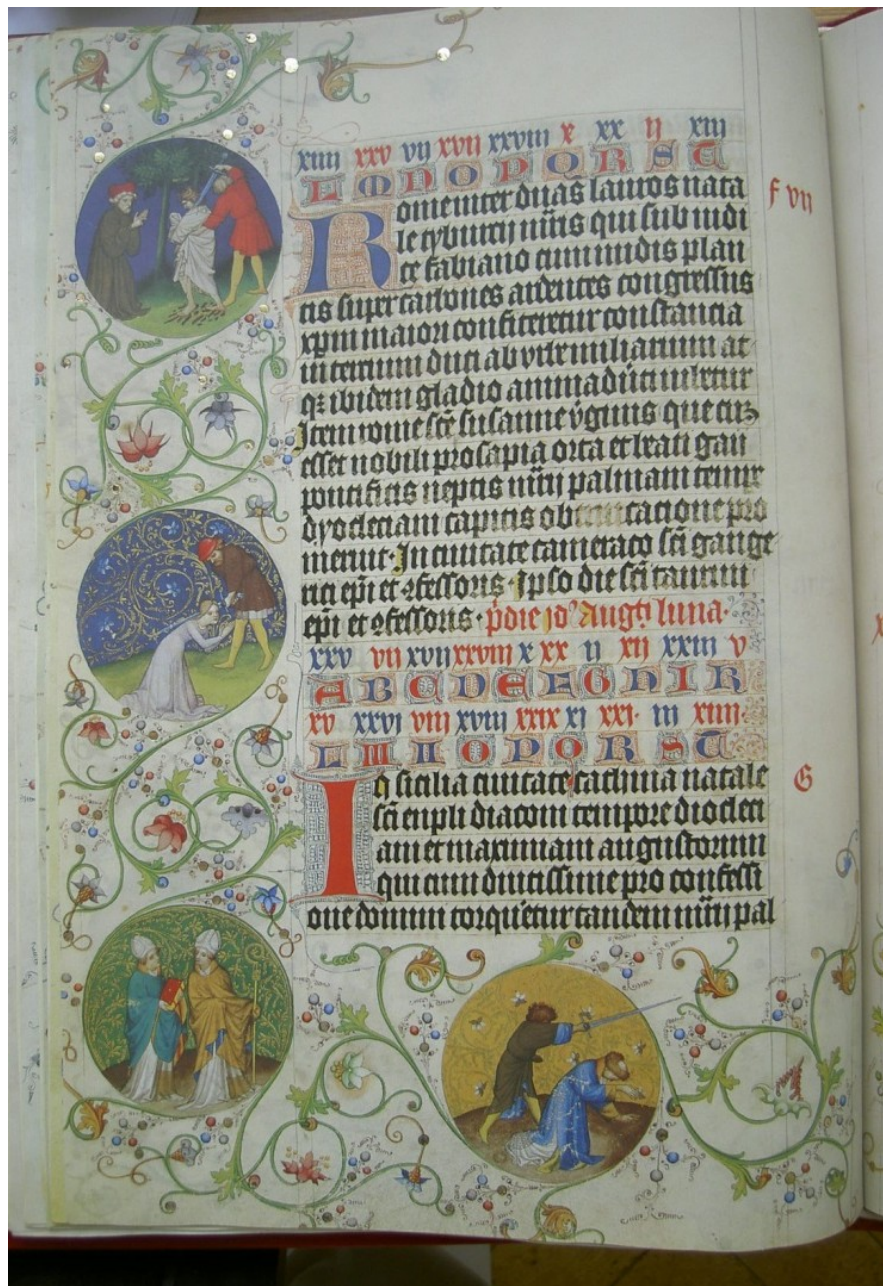 xiiii xxv vij xvij xxviii x xx ij xiii
L M N O P Q R S T
Rome inter duas lauros nata
f vij
le tyburcij mris qui sub iudi
ce fabiano cum nudis plan
tis super carbones ardentes congressus
xpm maiori confiteretur constancia
in tercium duci ab vrbe miliarium at
qz ibidem gladio animaduti iuberetur
Item rome sce susanne vginis que cuz
esset nobili prosapia orta et beati gaii
pontificis neptis mrij palmam tempe
dyocleciani capitis obtruncacione pro
meruit. In ciuitate cameraco sci gauge
rici epi et ofessoris. Ipso die sci taurini
epi et ofessoris. pdie id' Augti luna.
xxv vij xvij xxviii x xx ij xij xxiii v
A B C D E F G H I K
xv xxvi viii xviii xxix xi xxi. iii xiiii.
L M N O P Q R S T
In sicilia ciuitate cathina natale
G
sci eupli diaconi tempore diocleci
ani et maximiani augustorum
qui cum diutissime pro confessi
one domini torquetur tandem mrij pal